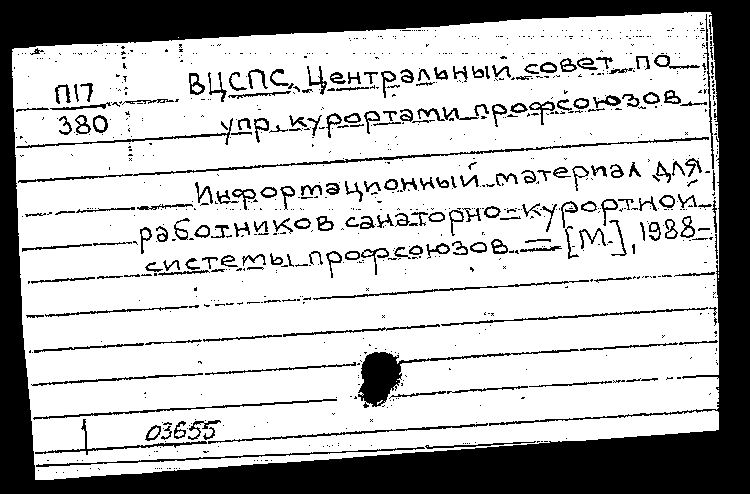 П17
380
ВЦСПС. Центральный совет по
упр. курортами профсоюзов
Информационный материал для
работников санаторно-курортной
системы профсоюзов. — [М.], 1988-
1 03655